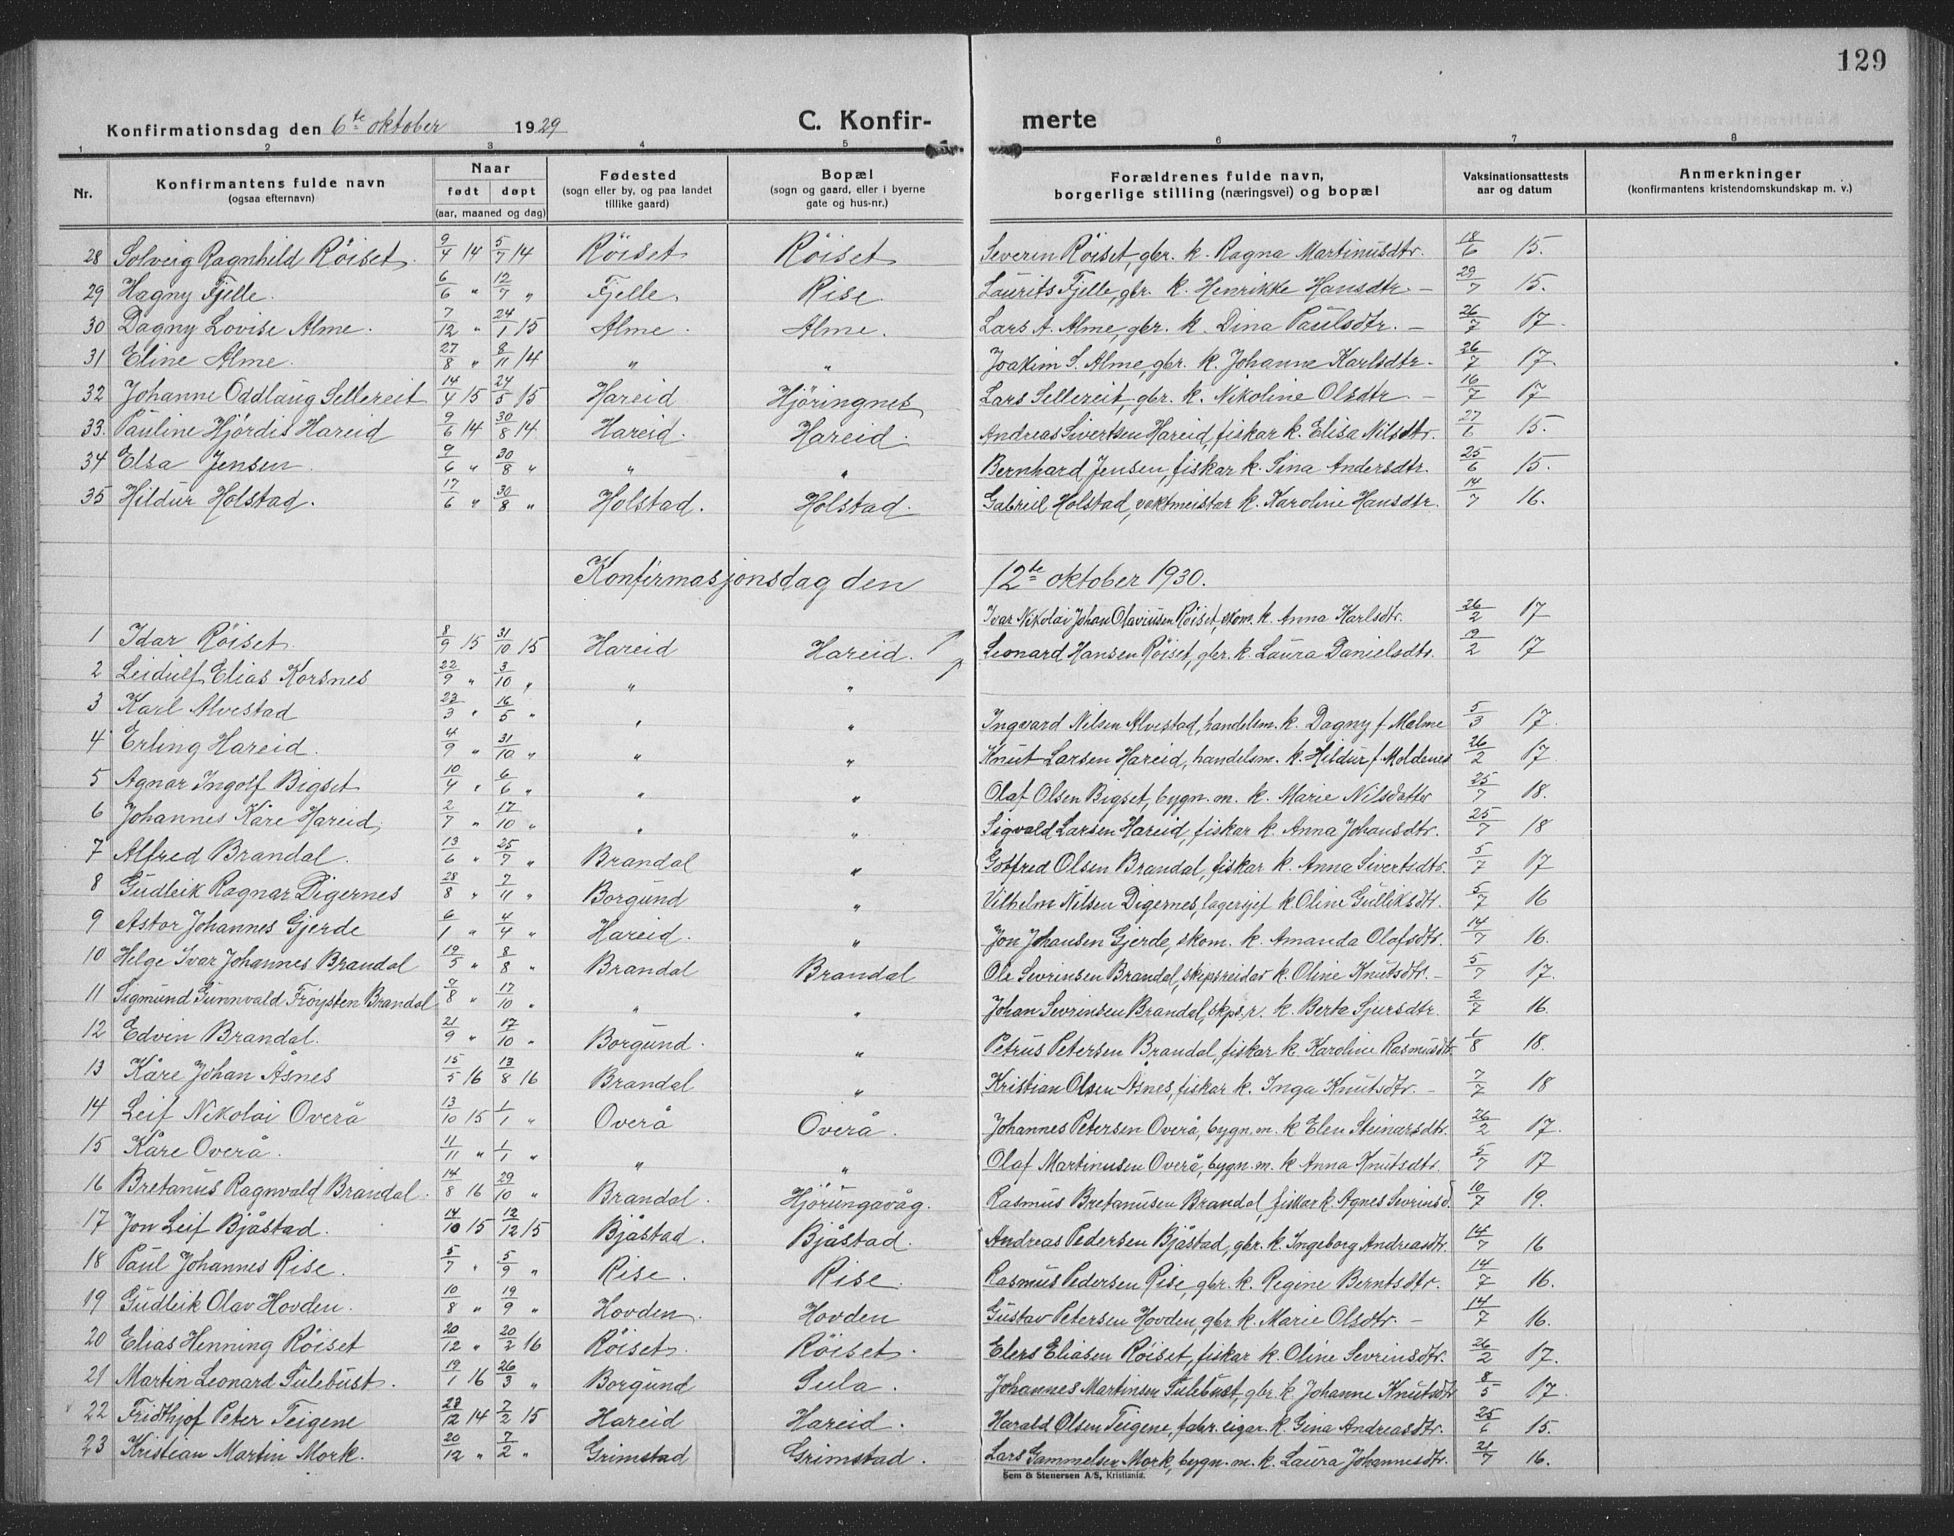 129
Konfirmationsdag den 6te oktober 1929 C. Konfir- merte
1 2 3 4 5 6 7 8
Nr. Konfirmantens fulde navn (ogsaa efternavn) Naar født døpt (aar, maaned og dag) Fødested (sogn eller by, og paa landet tillike gaard) Bopæl (sogn og gaard, eller i byerne gate og hus-nr.) Forældrenes fulde navn, borgerlige stilling (næringsvei) og bopæl Vaksinationsattests aar og datum Anmerkninger (konfirmantens kristendomskundskap m. v.)
28 Solveig Ragnhild Röiset. 9/4 14 5/7 14 Röiset Röiset Severin Röiset, gbr. k. Ragna Martinusdtr. 18/6 15.
29 Hagny Fjelle. 6/6 " 12/7 " Fjelle. Rise. Laurits Fjelle, gbr. k. Henrikke Hansdtr. – 29/7 15.
30 Dagny Lovise Alme. 7/12 " 24/1 15 Alme. Alme. Lars A. Alme, gbr. k. Dina Paulsdtr. – 26/7 17.
31 Eline Alme. 27/8 " 8/11 14 " " Joakim S. Alme, gbr. k. Johanne Karlsdtr. 26/7 17.
32 Johanne Oddlaug Sellereit 14/4 15 24/5 15 Hareid Hjöringnes Lars Sellereit, gbr. k. Nikoline Olsdtr. – 16/7 17
33. Pauline Hjördis Hareid 9/6 14 30/8 14 Hareid. Hareid. Andreas Sivertsen Hareid, fiskar k. Elisa Nilsdtr. 27/6 15.
34 Elsa Jensen. 9/6 " 30/8 " " " Bernhard Jensen, fiskar k. Sina Andersdtr. 25/6 15.
35 Hildur Holstad. 17/6 " 30/8 " Holstad. Holstad. Gabriel Holstad, vaktmeistar k. Karoline Hansdtr. 14/7 16.
Konfirmasjonsdag den 12te oktober 1930.
1 Idar Röiset 8/9 15 31/10 15 Hareid Hareid. Ivar Nikolai Johan Olaviusen Röiset, skom. k. Anna Karlsdtr. 26/2 17
2 Leidulf Elias Korsnes 22/9 " 3/10 " " " Leonard Hansen Röiset, gbr. k. Laura Danielsdtr. 9/2 17
3 Karl Alvestad 23/3 " 16/5 " " " Ingvard Nilsen Alvestad, handelsm. k. Dagny f. Malme 5/3 17.
4 Erling Hareid. 4/9 " 31/10 " " " Knut Larsen Hareid, handelsm. k. Hildur f. Moldenes 26/2 17.
5 Agnar Ingolf Bigset 10/4 " 6/6 " " " Olaf Olsen Bigset, bygn. m. k. Marie Nilsdatter 25/7 18.
6 Johannes Kåre Hareid. 2/7 " 17/10 " " " Sigvald Larsen Hareid, fiskar k. Anna Johansdtr. 25/7 18
7 Alfred Brandal. 13/6 " 25/7 " Brandal " Gotfred Olsen Brandal, fiskar k. Anna Sivertsdtr. 5/7 17
8 Gudleik Ragnar Digernes 28/8 " 7/11 " Borgund " Vilhelm Nilsen Digernes, lagersjef k. Oline Gulliksdtr. 5/7 16
9 Astor Johannes Gjerde 6/1 " 4/4 " Hareid. " Jon Johansen Gjerde, skom. k. Amanda Olafsdtr. 14/7 16.
10 Helge Ivar Johannes Brandal 19/5 " 8/8 " Brandal Brandal Ole Sevrinsen Brandal, skipsreidar k. Oline Knutsdtr. – 5/7 17.
11 Sigmund Gunnvald Fröysten Brandal 7/8 " 17/10 " " " Johan Sevrinsen Brandal, skps.r. k. Berta Sjursdtr. 2/7 16.
12 Edvin Brandal. 21/9 " 17/10 " Borgund. " Petrus Petersen Brandal, fiskar k. Karoline Rasmusdtr. 1/8 18.
13 Kåre Johan Åsnes 15/5 16 13/8 16 Brandal " Kristian Olsen Åsnes, fiskar k. Inga Knutsdtr. – 7/7 18
14 Leif Nikolai Overå 13/10 15 1/1 " Overå Overå. Johannes Petersen Overå, bygn. m. k. Elen Steinarsdtr. 26/2 17.
15 Kåre Overå. 11/11 " 1/1 " " " Olaf Martinusen Overå, bygn. m. k. Anna Knutsdtr. 5/7 17
16 Bretanus Ragnvald Brandal. 14/8 16 29/10 " Brandal. Hjörungavåg. Rasmus Bretanusen Brandal, fiskar k. Agnes Sevrinsd. 10/7 19.
17 Jon Leif Bjåstad. 14/10 15 12/12 15 Bjåstad. Bjåstad. Andreas Pedersen Bjåstad, gbr. k. Ingeborg Andreasdtr. 14/7 16
18 Paul Johannes Rise. 5/7 " 5/9 " Rise. Rise. Rasmus Pedersen Rise, gbr. k. Regine Berntsdtr. 14/7 16.
19 Gudleik Olav Hovden. 10/8 " 19/9 " Hovden. Hovden Gustav Petersen Hovden, gbr. k. Marie Olsdtr. – 14/7 16.
20 Elias Henning Röiset 20/12 " 20/2 16 Röiset. Röiset. Elers Eliasen Röiset, fiskar k. Oline Sevrinsdtr. 26/2 17.
21 Martin Leonard Sulebust. 19/1 16 26/3 " Borgund Sula. Johannes Martinsen Sulebust, gbr. k. Johanne Knutsdtr 8/5 17.
22 Fridthjof Peter Teigene 28/12 14 7/2 15 Hareid Hareid. Harald Olsen Teigene, fabr. eigar. k. Gina Andreasdtr. 25/6 15.
23 Kristian Martin Mork. 20/12 " 7/2 " Grimstad Grimstad. Lars Gammelsen Mork, bygn. m. k. Laura Johannesdtr. 21/7 16.
Sem & Stenersen A/S, Kristiania.